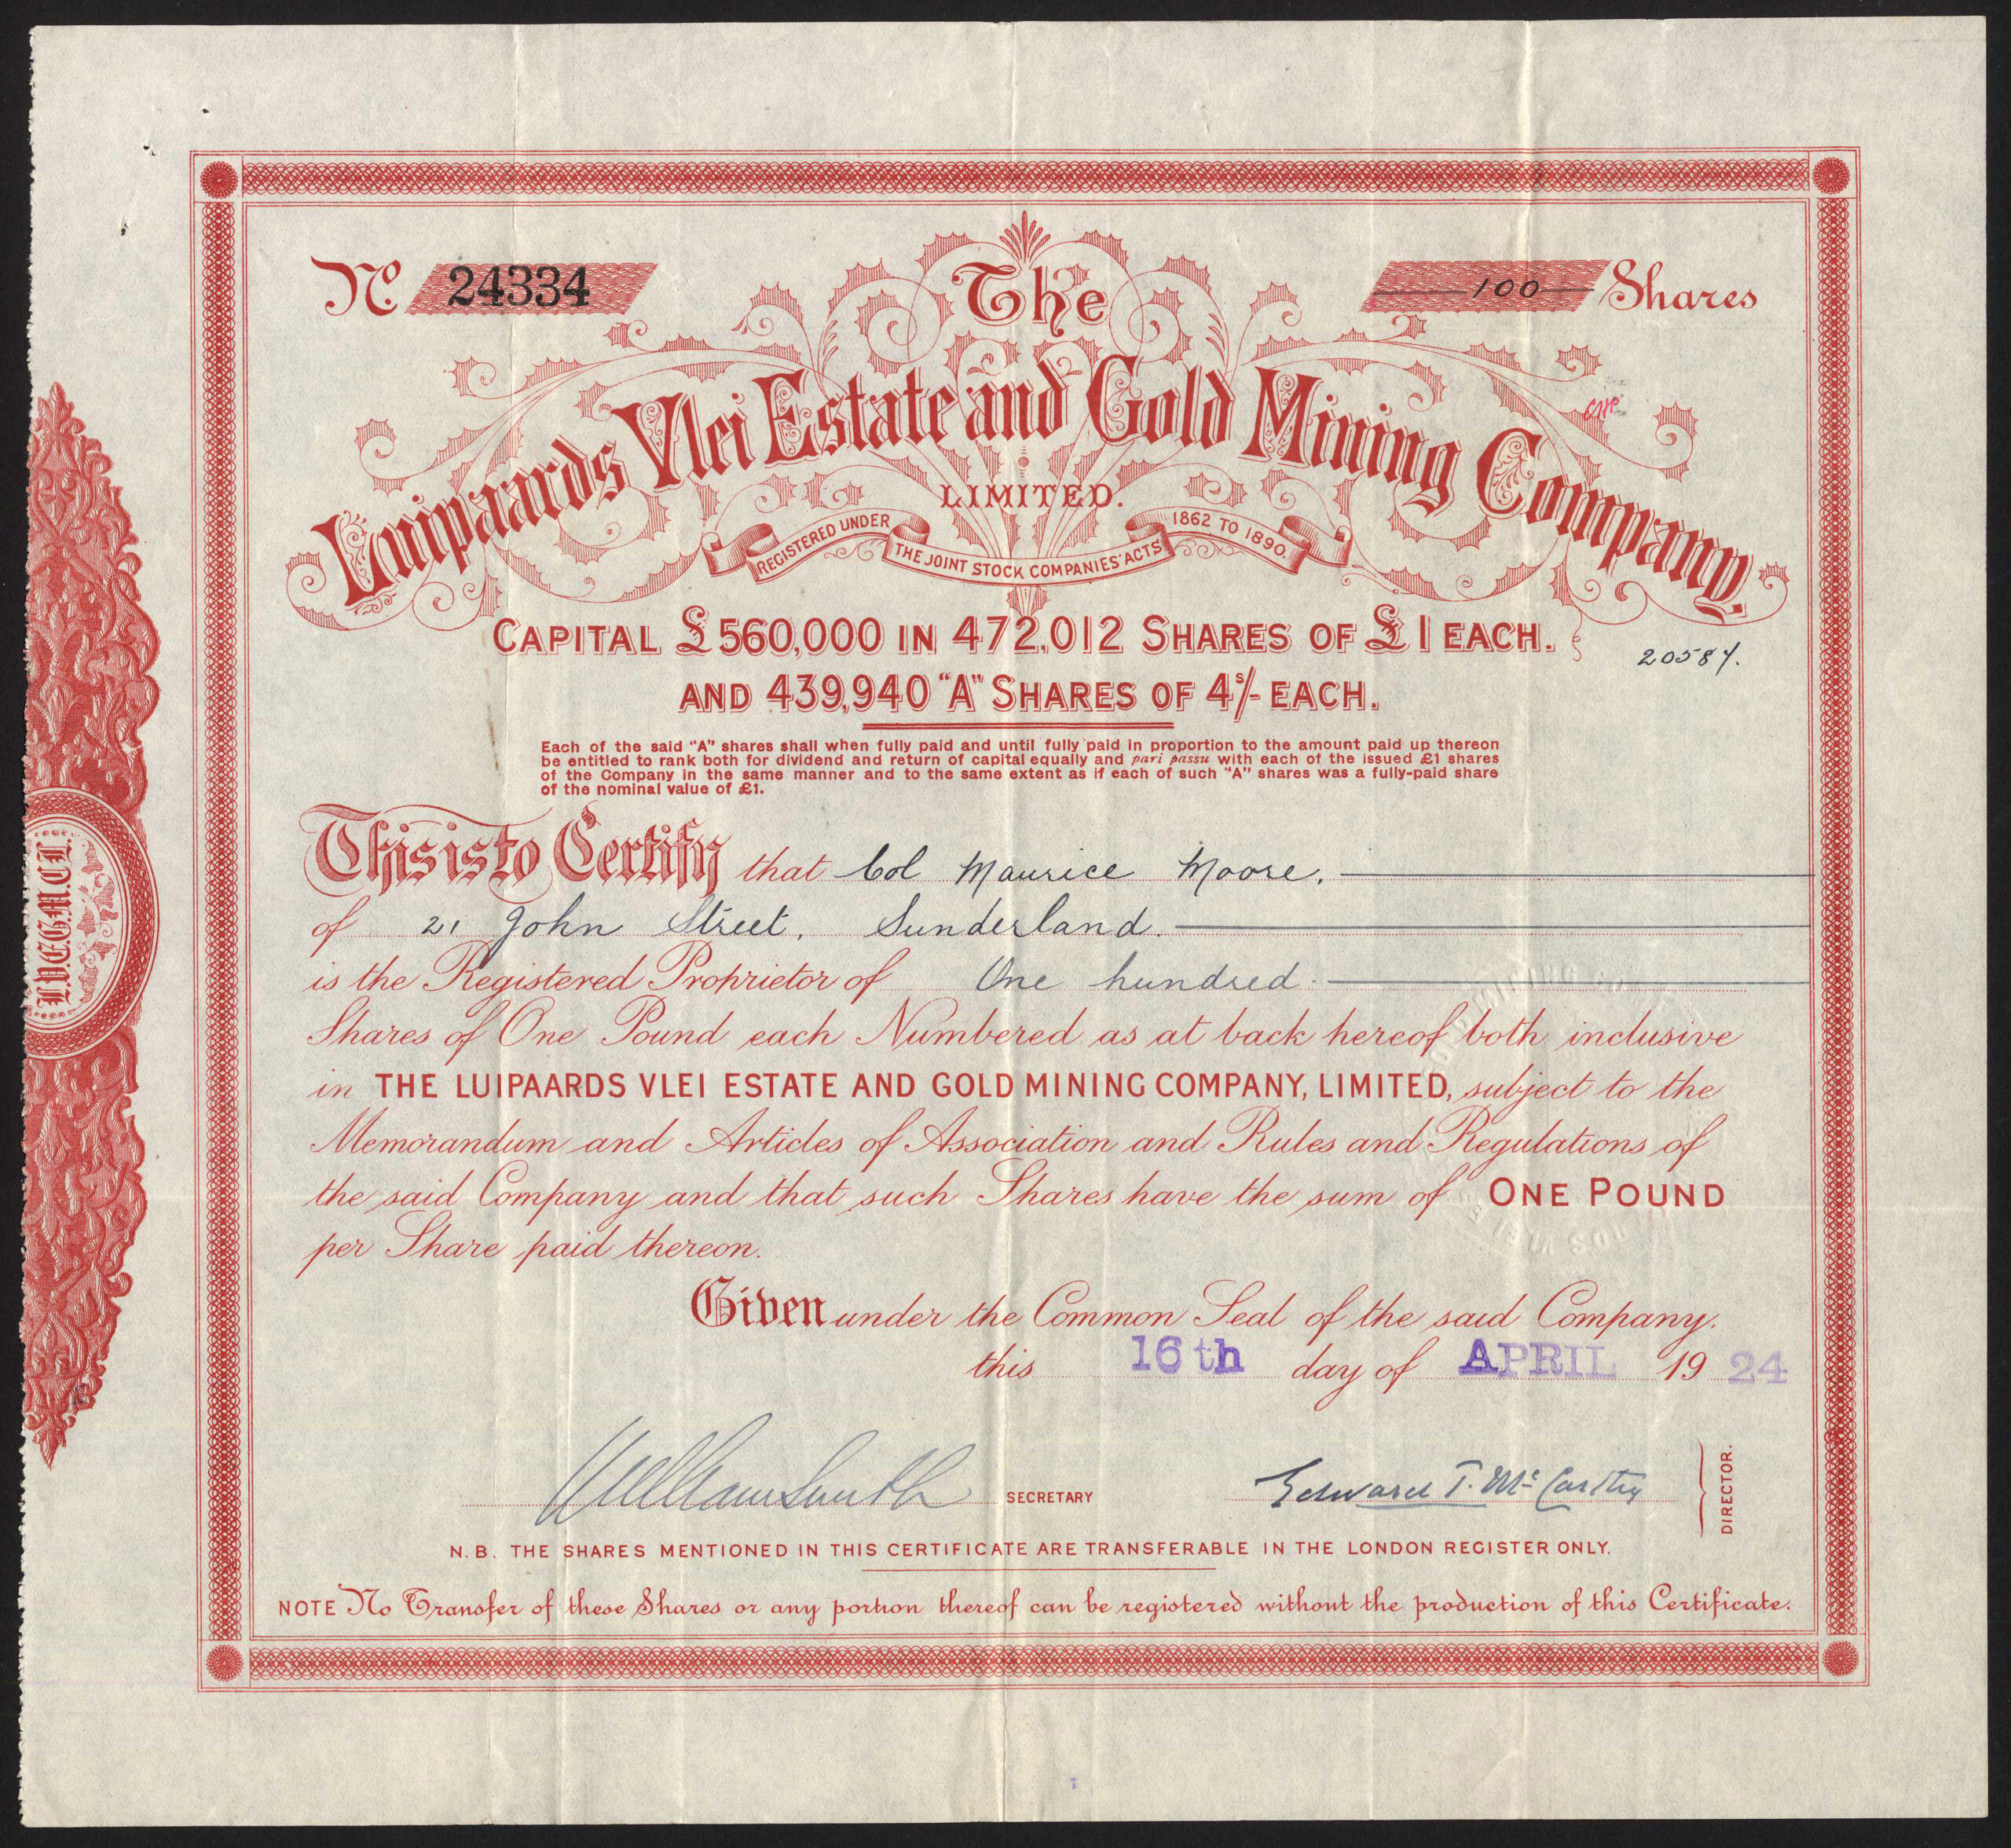 No 24334
100 Shares
The
Luipaards Vlei Estate and Gold Mining Company.
LIMITED.
REGISTERED UNDER THE JOINT STOCK COMPANIES' ACTS 1862 TO 1890.
CAPITAL £560,000 IN 472,012 SHARES OF £1 EACH.
20584.
AND 439,940 "A" SHARES OF 4s/- EACH.
Each of the said "A" shares shall when fully paid and until fully paid in proportion to the amount paid up thereon
be entitled to rank both for dividend and return of capital equally and pari passu with each of the issued £1 shares
of the Company in the same manner and to the same extent as if each of such "A" shares was a fully-paid share
of the nominal value of £1.
This is to Certify that Col Maurice Moore.
of 21 John Street, Sunderland.
is the Registered Proprietor of One hundred
Shares of One Pound each Numbered as at back hereof both inclusive
in THE LUIPAARDS VLEI ESTATE AND GOLD MINING COMPANY, LIMITED, subject to the
Memorandum and Articles of Association and Rules and Regulations of
the said Company and that such Shares have the sum of ONE POUND
per Share paid thereon.
Given under the Common Seal of the said Company.
this 16th day of APRIL 1924
William Smith SECRETARY
Edward T. McCarthy DIRECTOR.
N.B. THE SHARES MENTIONED IN THIS CERTIFICATE ARE TRANSFERABLE IN THE LONDON REGISTER ONLY.
NOTE No Transfer of these Shares or any portion thereof can be registered without the production of this Certificate.
L.V.E.G.M.C.L.